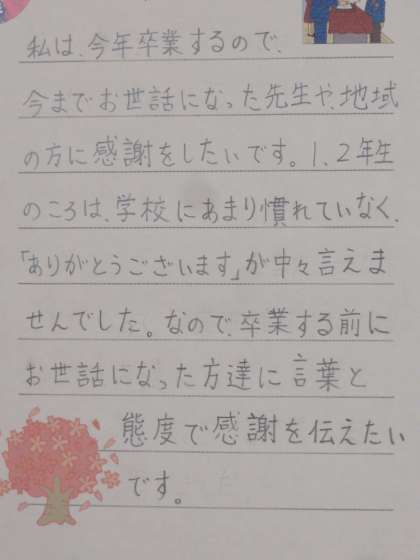 私は、今年卒業するので、
今までお世話になった先生や、地域
の方に感謝をしたいです。1、2年生
のころは、学校にあまり慣れていなく、
「ありがとうございます」が中々言えま
せんでした。なので、卒業する前に
お世話になった方達に言葉と
態度で感謝を伝えたい
です。